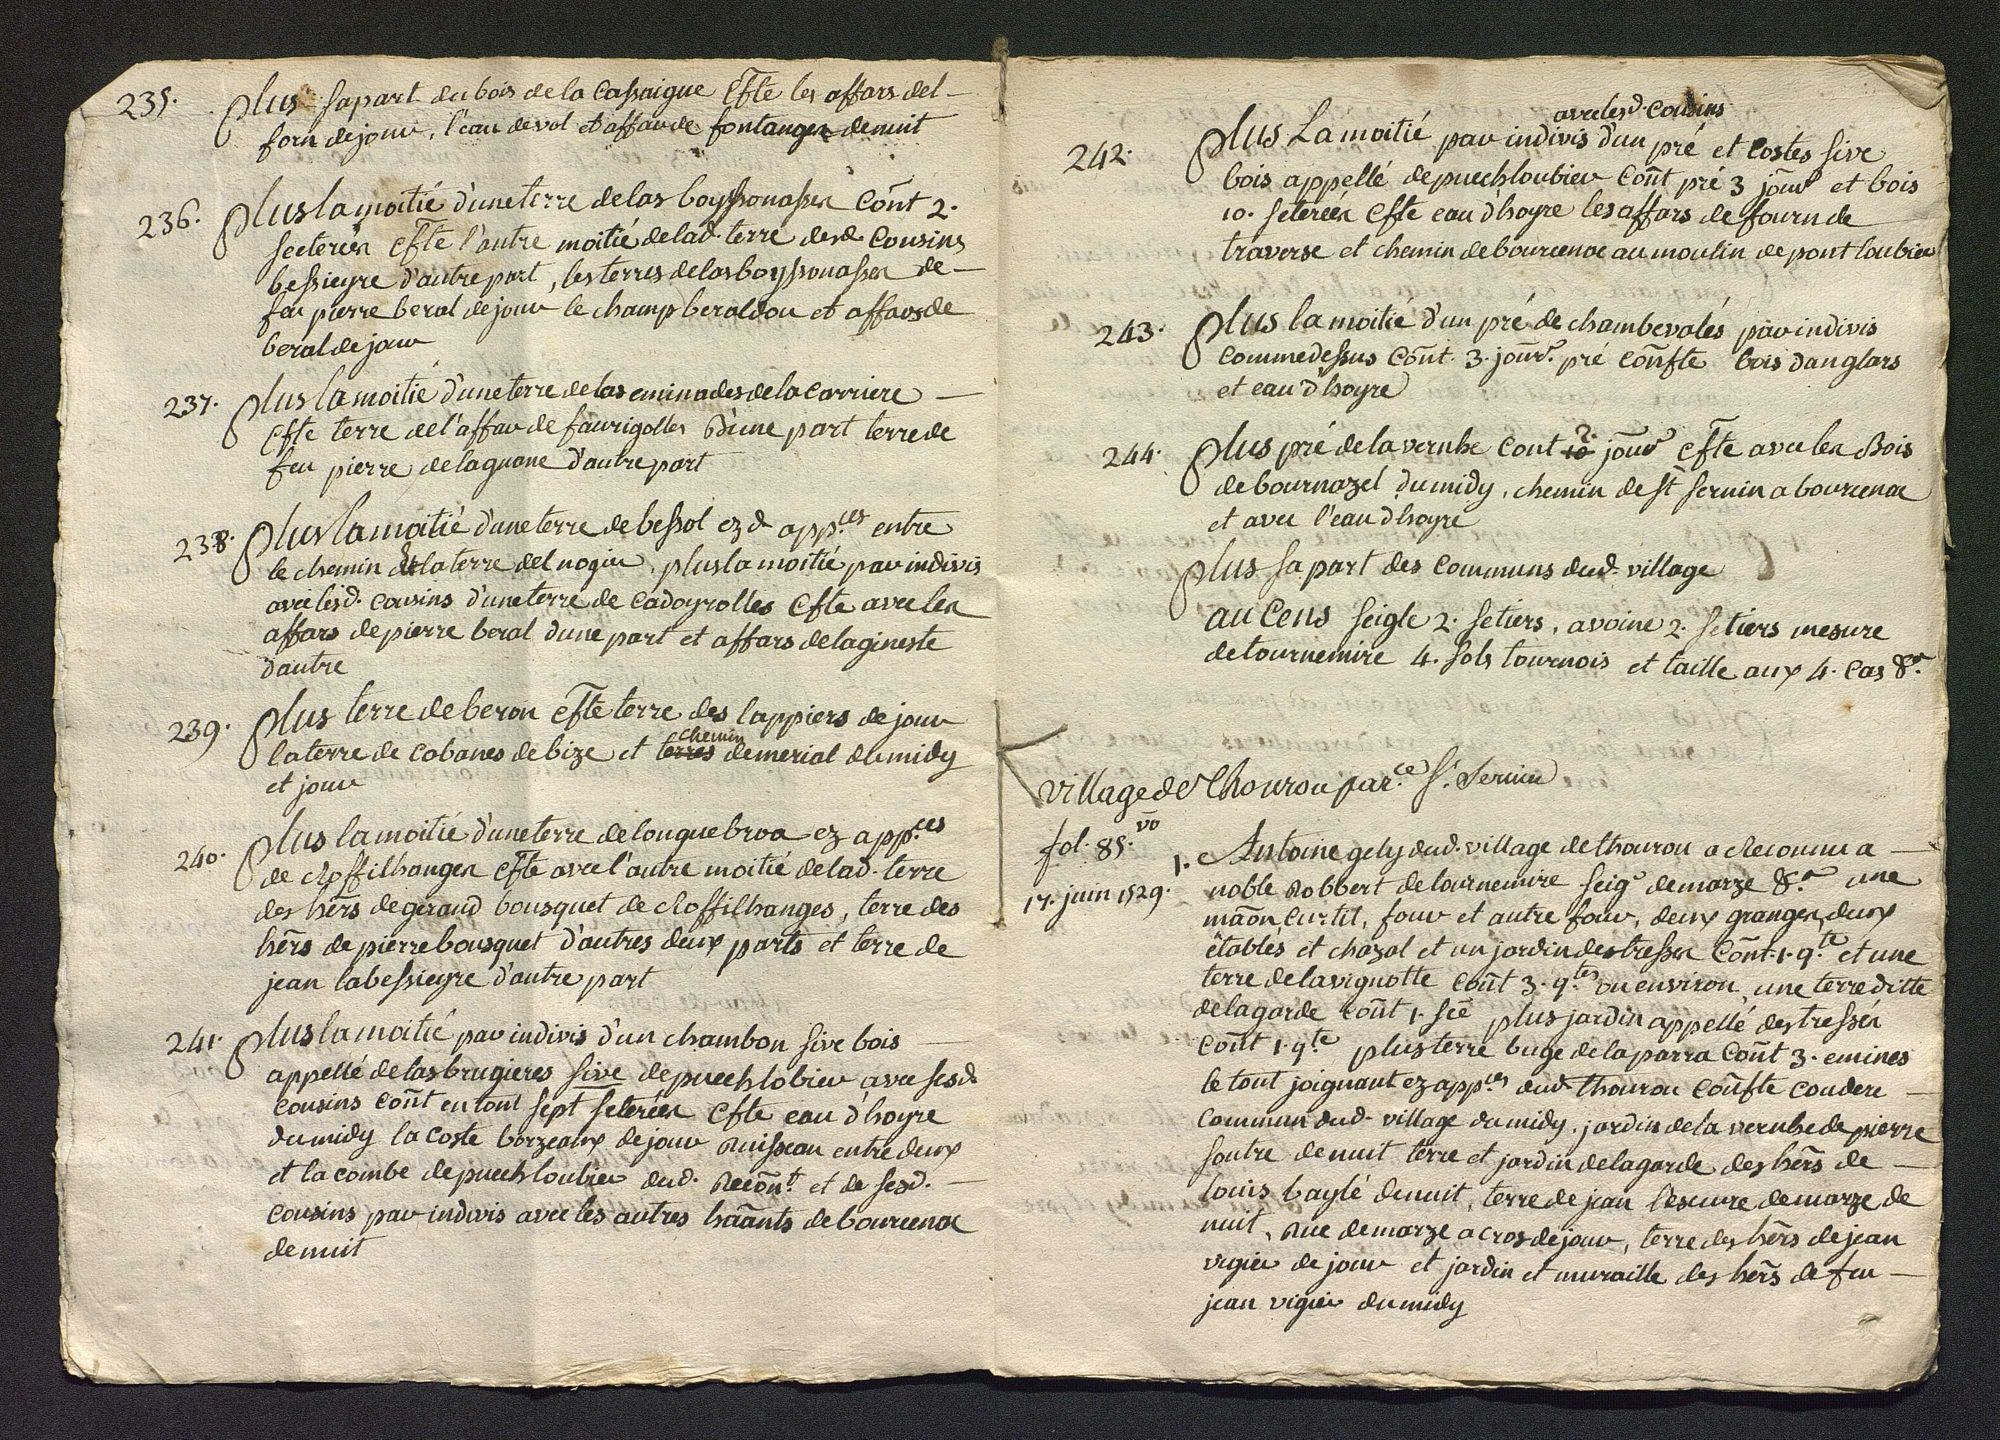 235. Plus sa part du bois de la Cassaigne Cfte les affars del
forn de jour, l'eau de vol et affar de fontanges de nuit
236. Plus la moitié d'une terre de las boyssonasses Cont 2.
seterées Cfte l'autre moitié de lad. terre desd. Cousins
bessieyre d'autre part, les terres de las boyssonasses de
feu pierre beral de jour le champ beraldou et affars de
beral de jour
237. Plus la moitié d'une terre de las eminades de la Carriere
Cfte terre de l'affar de faurigolles D'une part terre de
feu pierre de laguane d'autre part
238. Plus la moitié d'une terre de bessol ezd. app.ces entre
le chemin et la terre del nogier, plus la moitié par indivis
avec lesd. cousins d'une terre de Cadoyrolles Cfte avec les
affars de pierre beral d'une part et affars de lagineste
d'autre
239. Plus terre de beron Cfte terre des lappiers de jour
la terre de cabanes de bize et terres chemin de merial du midy
et jour
240. Plus la moitié d'une terre de longuebroa ez app.ces
de Roffilhanges Cfte avec l'autre moitié de lad. terre
des hers de geraud bousquet de Roffilhanges, terre des
hers de pierre bousquet d'autres deux parts et terre de
jean labessieyre d'autre part
241. Plus la moitié par indivis d'un chambon sive bois
appellé de las brugieres sive de puech lobier avec sesd.
cousins Cont en tout sept seterées Cfte eau d'hoyre
du midy la coste borzeaux de jour Ruisseau entre deux
et la combe de puech loubier dud. Recon.t et de sesd.
cousins par indivis avec les autres haants de bourcenac
de nuit
avec lesd. cousins
242. Plus La moitié par indivis d'un pré et Costes sive
bois appellé de puech loubier Cont pré 3 jour.x et bois
10. seterées Cfte eau d'hoyre les affars de fourn de
traverse et chemin de bourcenac au moulin de pont loubier
243. Plus la moitié d'un pré de chambevalés par indivis
comme dessus Cont. 3. jour.x pré Confte bois d'anglars
et eau d'hoyre
244. Plus pré de la vernhe Cont 10 2. jour.x Cfte avec les Bois
de bournazel du midy, chemin de St sernin a bourcenac
et avec l'eau d'hoyre
Plus sa part des communs dud. village
au Cens seigle 2. setiers, avoine 2. setiers mesure
de tournemire 4. sols tournois et taille aux 4. cas &a
village de Thourou par.ce St. Sernin
fol. 85. vo
17. juin 1529.
1. Antoine gely dud. village de thourou a Reconnu a
noble Robbert de tournemire seigr de marze &a une
maon, Curtil, four et autre four, deux granges, deux
étables et chazal et un jardin des tresses Cont. 1. q.te et une
terre de la vignotte Cont 3. q.tes ou environ, une terre ditte
de la garde Cont 1. sée plus jardin appellé des tresses
Cont 1. q.te plus terre buge de la parra Cont 3. emines
le tout joignant ez app.ces dud. thourou Confte Couderc
commun dud. village du midy, jardin de la vernhe de pierre
soutre de nuit terre et jardin de la garde des hers de
louis baylé de nuit, terre de jean lescure de marze de
nuit, Rue de marze a cros de jour, terre des hers de jean
vigier de jour et jardin et muraille des hers de feu
jean vigier du midy